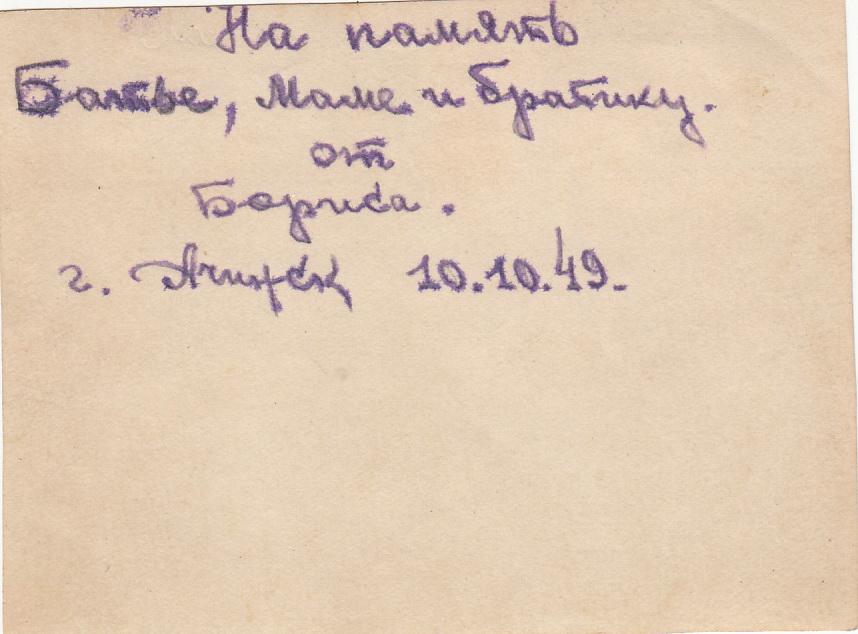 На память
Батьке, Маме и братику.
от
Бориса.
г. Ачинск 10.10.49.